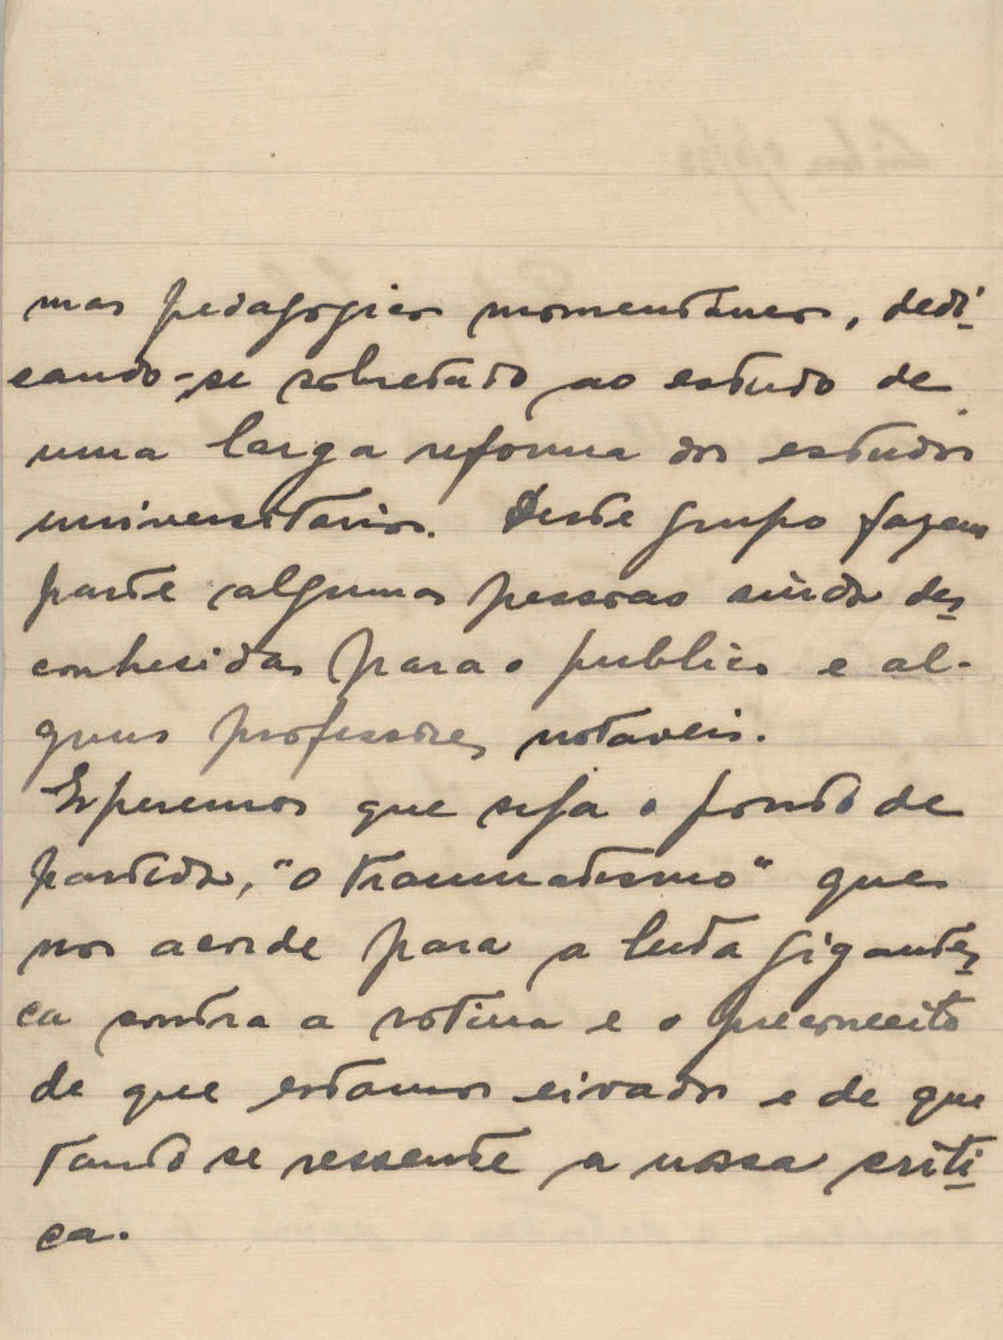 mas pedagogicos momentaneos, dedi-
cando-se sobretudo ao estudo de
uma larga reforma dos estudos
universitarios. Deste grupo fazem
parte algumas pessoas ainda des-
conhecidas para o publico e al-
guns professores notaveis.
Esperemos que seja o ponto de
partida, "o traumatismo" que
nos acorde para a luta gigantes-
ca contra a rotina e o preconceito
de que estamos eivados e de que
tanto se ressente a nossa criti-
ca.